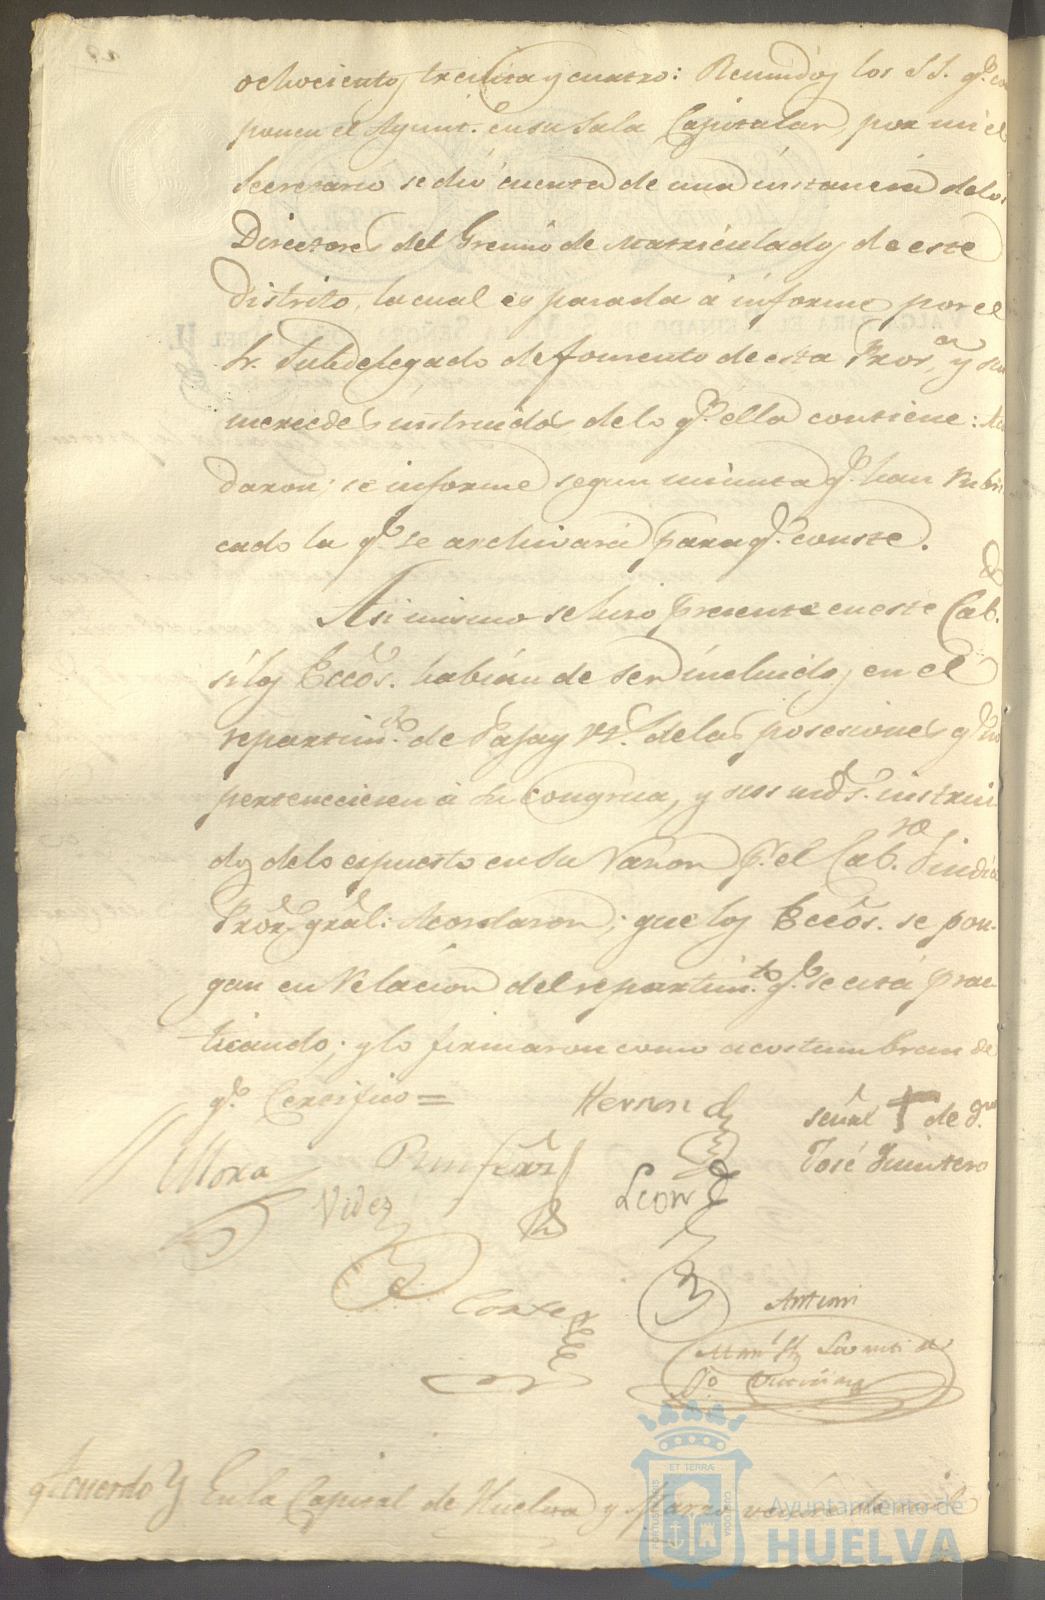 ochocientos treinta y cuatro: Reunidos los SS. q.e com
ponen el Ayunt.º en su Sala Capitular, por mi el
Secretario se dió cuenta de una instancia de los
Directores del Gremio de Matriculados de este
Distrito, la cual es pasada á informe por el
Sr. Subdelegado de fomento de esta Prov.ª y sus
mercedes instruidos de lo q.e ella contiene: Acor
daron; se informe segun minuta q.e han rubri
cado la q.e se archivará para q.e conste.
Asi mismo se hizo presente en este Cab.do
si los Eccos. habian de ser incluidos en el
repartim.to de Paja y Vt.s de las posesiones q.e no
perteneciesen á su congrua, y sus mds. instrui-
dos de lo espuesto en su razon p.r el Cab.ro Sindico
Pror. gral: Acordaron; que los Eccos. se pon-
gan en relacion del repartim.to q.e se está prac
ticando; y lo firmaron como acostumbran de
q.e Certifico =
Hernand
señal † de d.n
José Quintero
Mora
Vides
Leon
Cortes
Antemi
En la Capital de Huelva y Marzo
Acuerdo
ET TERRÆ
CUSTODIA
PORTUS MARIS
Ayuntamiento de
HUELVA